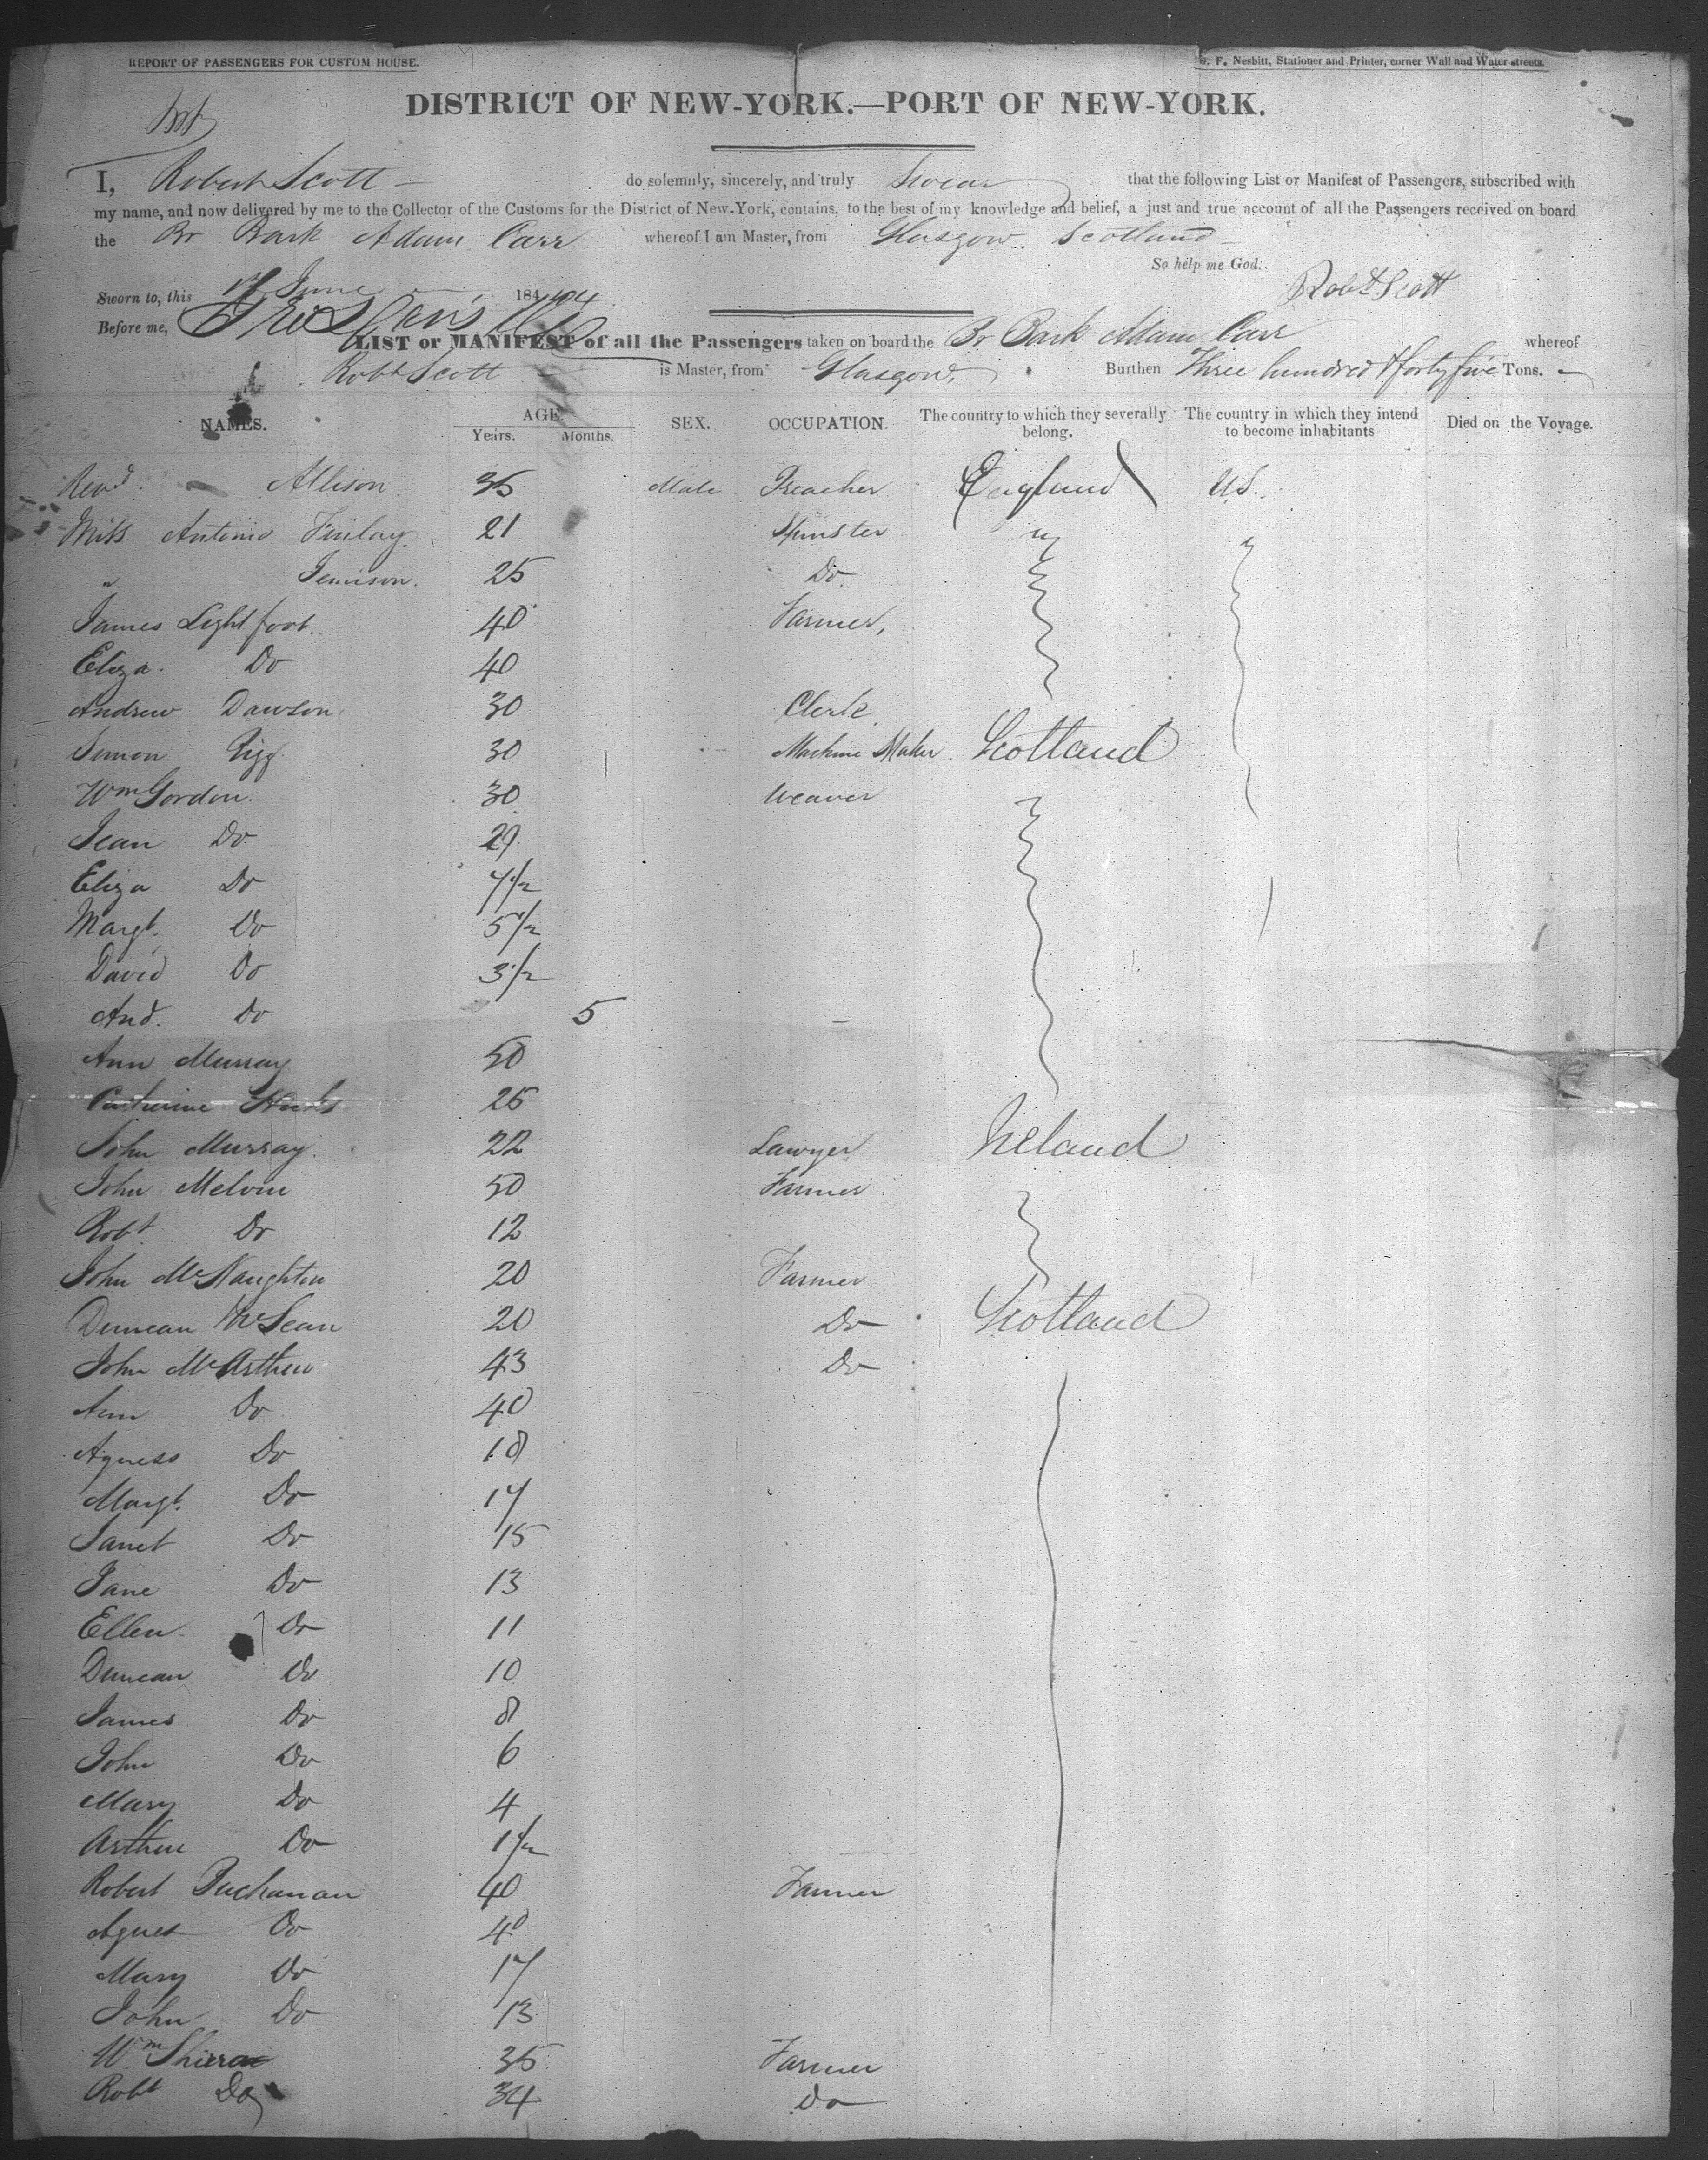 REPORT OF PASSENGERS FOR CUSTOM HOUSE.
F. Nesbitt, Stationer and Printer, corner Wall and Water-streets.
DISTRICT OF NEW-YORK.—PORT OF NEW-YORK.
I, Robert Scott — do solemnly, sincerely, and truly Swear that the following List or Manifest of Passengers, subscribed with
my name, and now delivered by me to the Collector of the Customs for the District of New-York, contains, to the best of my knowledge and belief, a just and true account of all the Passengers received on board
the Br Bark Adam Carr whereof I am Master, from Glasgow. Scotland —
So help me God.
Robt Scott
Sworn to, this June 184
Before me,
LIST or MANIFEST of all the Passengers taken on board the Br Bark Adam Carr whereof
Robt Scott is Master, from Glasgow, Burthen Three hundred & forty five Tons.
NAMES. AGE. SEX. OCCUPATION. The country to which they severally belong. The country in which they intend to become inhabitants Died on the Voyage.
Years. Months.
Revd. Allison 35 Male Preacher England US.
Miss Antonio Finlay 21 Spinster
" Jemison. 25 Do
James Lightfoot. 40 Farmer,
Eliza. Do 40
Andrew Dawson 30 Clerk
Simon Rigg 30 Machine Maker Scotland
Wm Gordon. 30 Weaver
Jean Do 29
Eliza Do 7 1/2
Margt. Do 5 1/2
David Do 3 1/2
And. Do 5
Ann Murray 50
Catherine 25
John Murray. 22 Lawyer Ireland
John Melvin 50 Farmer
Robt Do 12
John McNaughton 20 Farmer
Duncan McLean 20 Do Scotland
John McArthur 43 Do
Ann Do 40
Agness Do 18
Margt. Do 17
Janet Do 15
Jane Do 13
Ellen. Do 11
Duncan Do 10
James Do 8
John Do 6
Mary Do 4
Arthur Do 1 1/2
Robert Buchanan 40 Farmer
Agnes Do 40
Mary Do 17
John Do 13
Wm 35 Farmer
Robt Do 34 Do